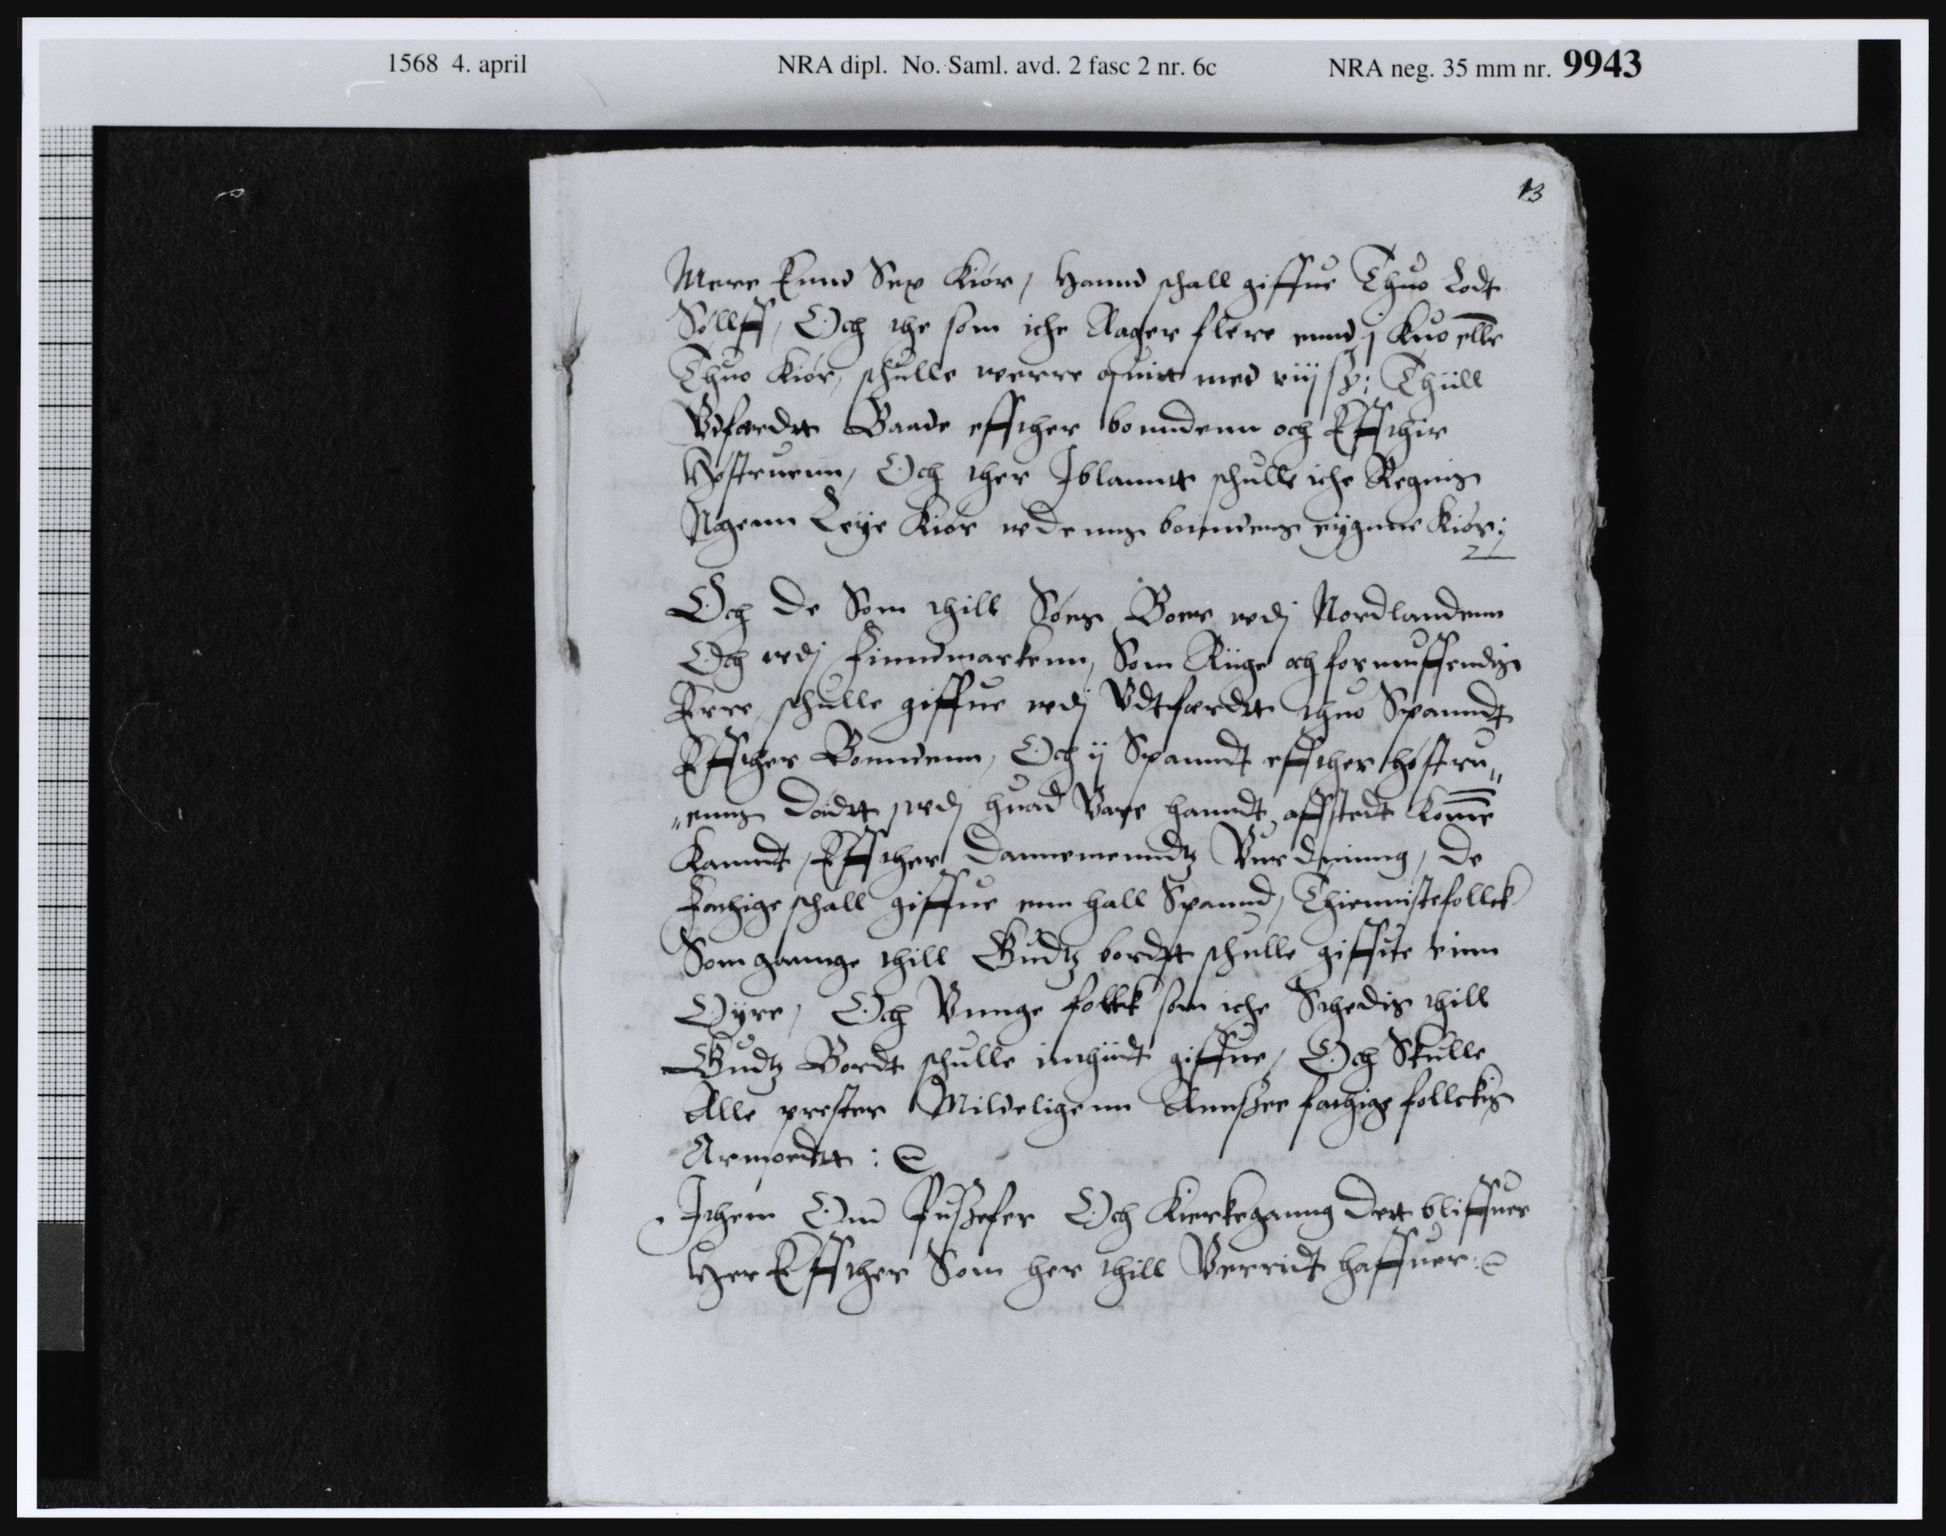 1568 4. april
NRA dipl. No. Saml. avd. 2 fasc 2 nr. 6c
NRA neg. 35 mm nr. 9943
13
Mere Ennd Sex Kiør, Hannd schall giffue Thuo Lodt
Søllff, Och the som iche Aager flere ennd j Kuo elle
Thuo Kiør, schulle werre quitt med viij sk: Thiill
Vdfærdtt Baade effther bonndenn och Effthir
Høstruenn, Och ther Iblanntt schulle iche Regnis
Nogenn Leÿe Kiør vdenns bonndens eÿgnne Kiør:
Och De Som thill Søes Boer vdj Nordlandenn
Och vdj Finndmarkenn, Som Riige och formuffendis
Erre, schulle giffue vdj Vdtfærdtt thuo Spanndt
Effther Bonndenn, Och ij Spanndt effther høstru„
„enns Dødtt, vdj huad Vare hanndt affstedt komme
Kanndt, Effther Dannemenndtz Vurdniinng, De
Fathige schall giffue enn hall Spannd, Thiennistefollck
Som gaannge thill Gudtz bordtt schulle giffue einn
Oÿre, Och Vnnge follck som iche Stedis thill
Gudtz Bordt schulle inthiidt giffue, Och Skulle
Alle prester Mildeligenn Annsee fathige follckis
Armoedtt :
Ithem Om Fussefer Och Kierkegaanng Dett bliffuer
Her Effther Som her thill Verridt haffuer: